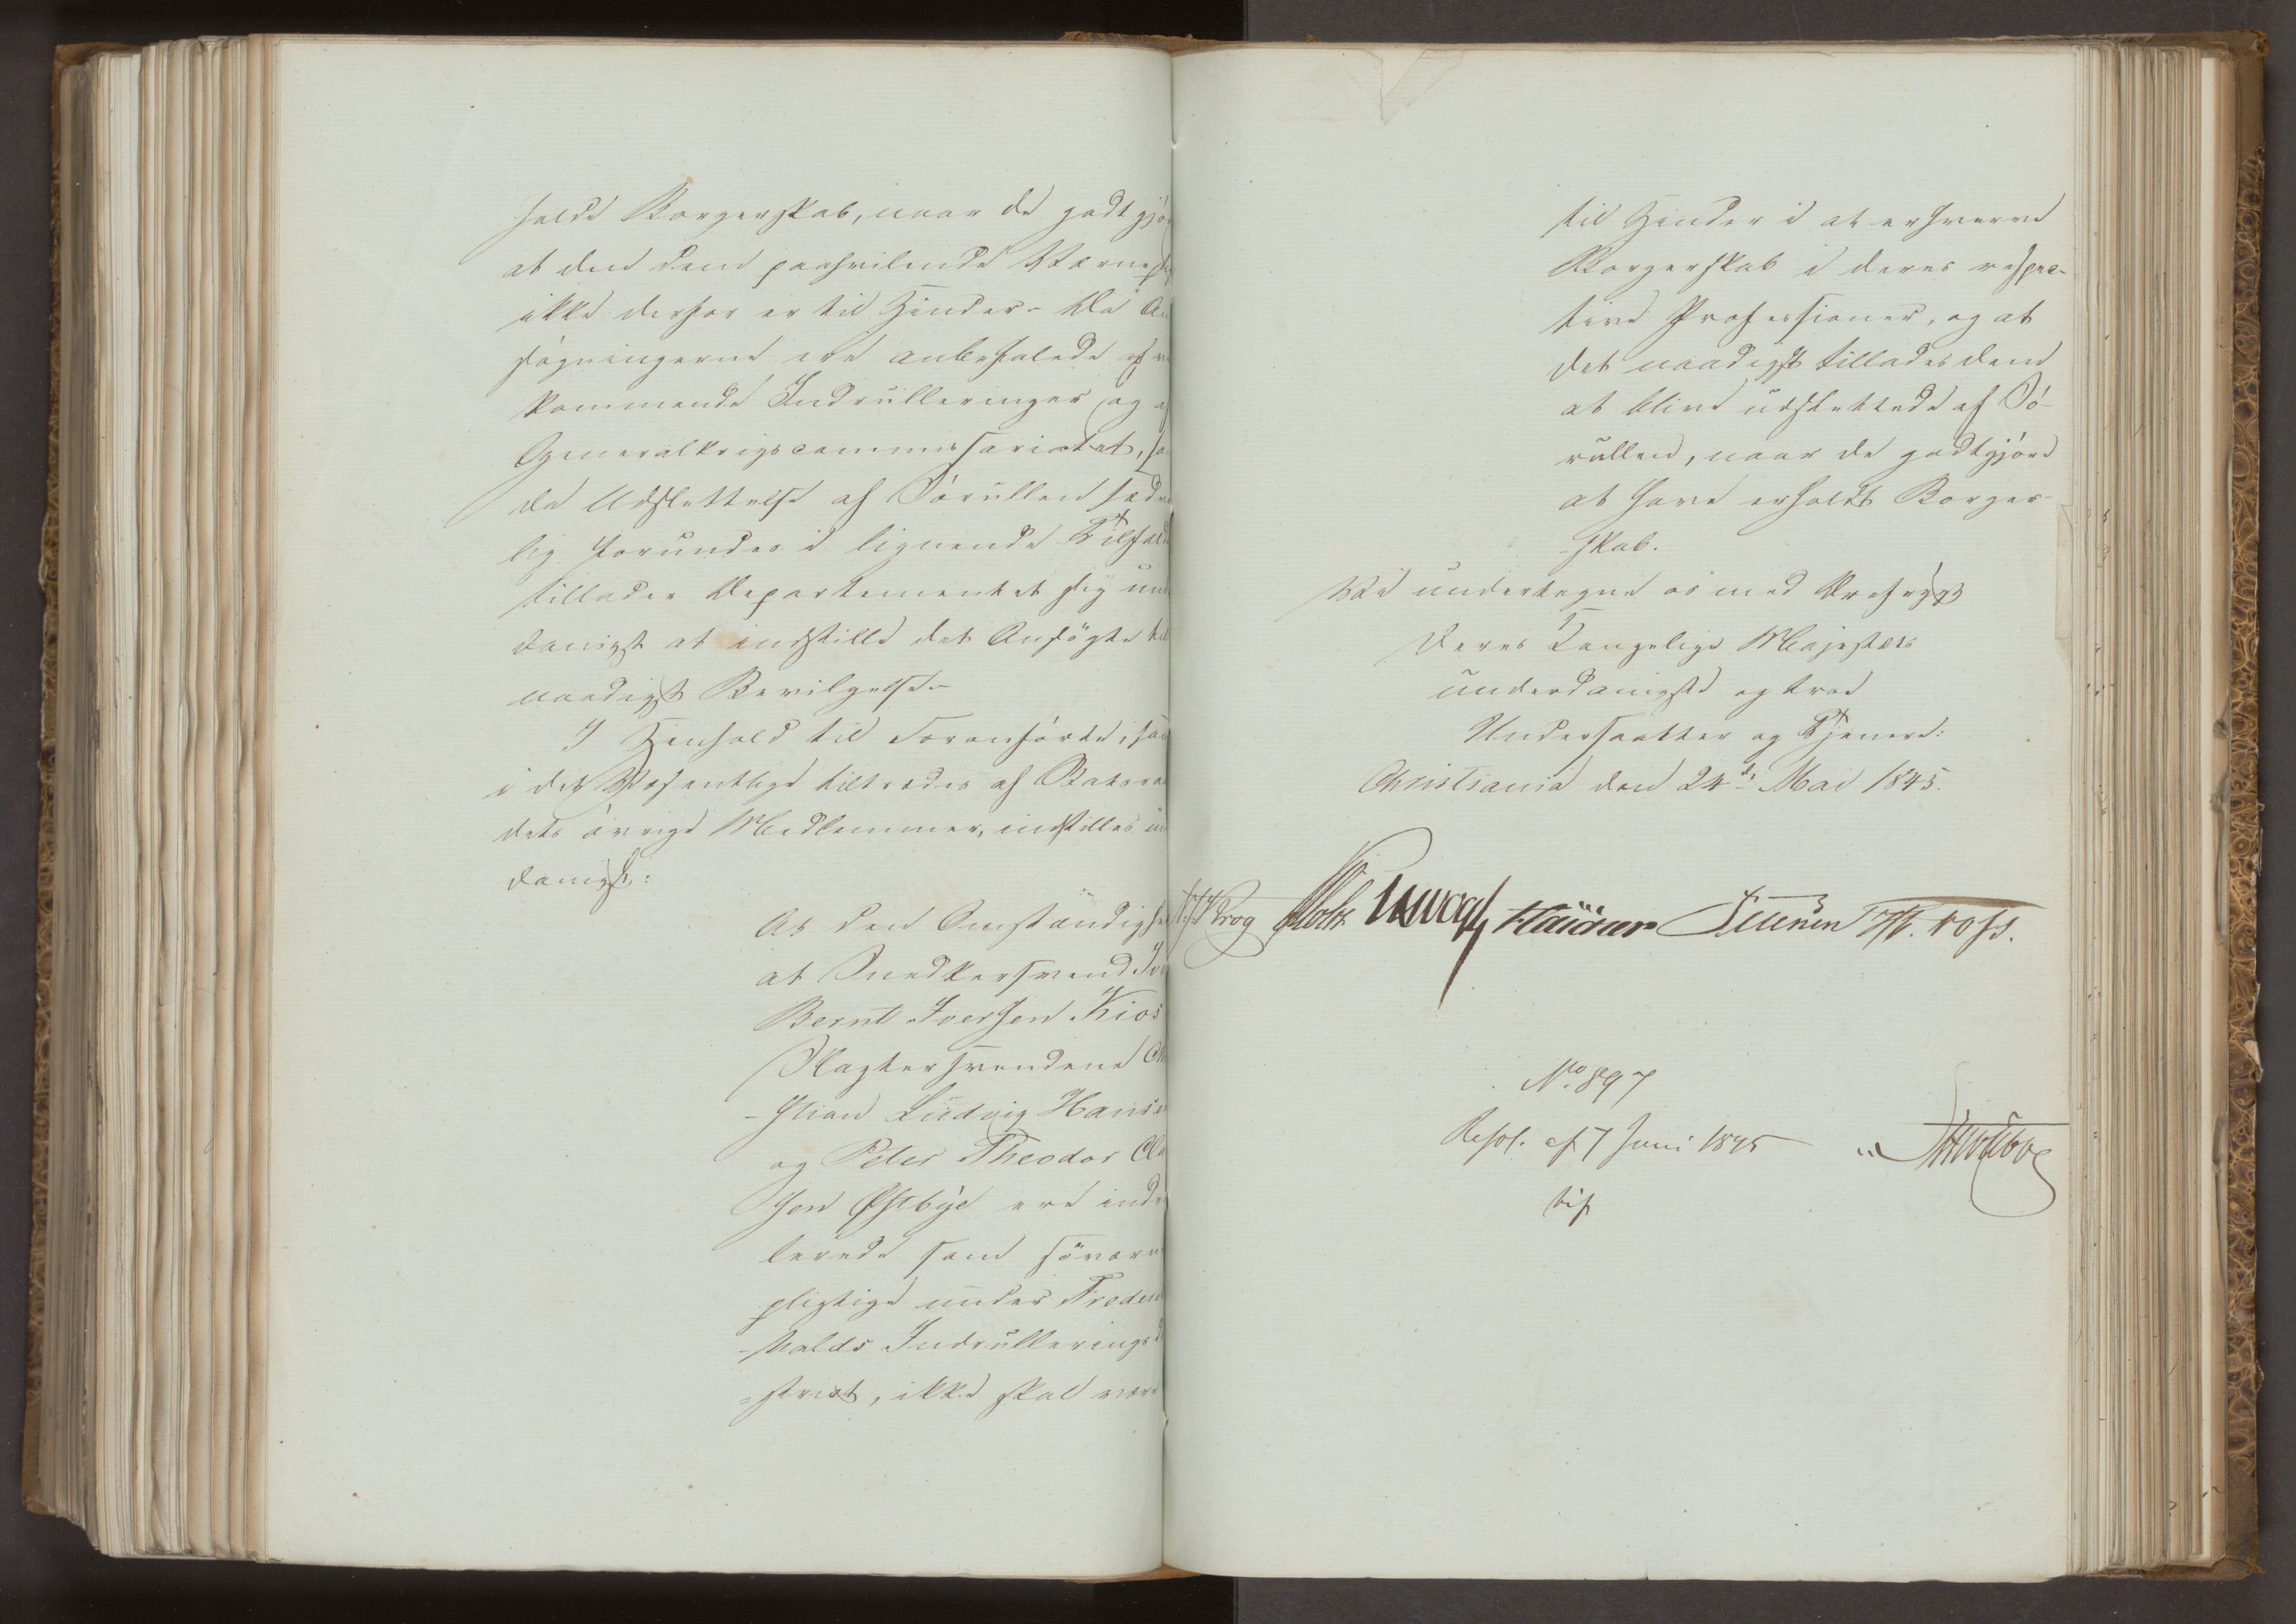 holde Borgerskab, naar de godtgjø
at den dem paahvilende Værnepl
ikke derfor er til Hinder. Da An
søgningerne ere anbefalede af v
kommende Indrulleringer og af
Generalkrigscommissariatet, sa
da Udslettelse af Sørullen sædv
lig forundes i lignende Tilfæld
tillader Departementet sig und
danigst at indstille det Ansøgte til
naadigst Bevilgelse.
I Henhold til Foranførte, som
i det Væsentlige tiltrædes af Statsraa
dets øvrige Medlemmer, indstilles un
danigst:
At den Omstændighe
at Snedkersvend
Bernt Iversen Kios
Slagtersvendene Ch
-stian Ludvig Hansen
og Peter Theodor Cla
sen Østbye ere indr
lerede som søværn
pligtige under Frederi
-halds Indrullerings D
-strict, ikke skal være
til Hinder i at erhverve
Borgerskab i deres respec-
tive Professioner, og at
det naadigst tillades dem
at blive udslettede af Sø-
rullen, naar de godtgjøre
at have erholdt Borger-
skab.
Vi undertegne os med Ærefrygt
Deres Kongelige Majestæts
underdanigste og troe
Undersaatter og Tjenere:
Christiania den 24de Mai 1845.
Krog Holst Vogt
No. 897
Resol. af 7 Juni 1845